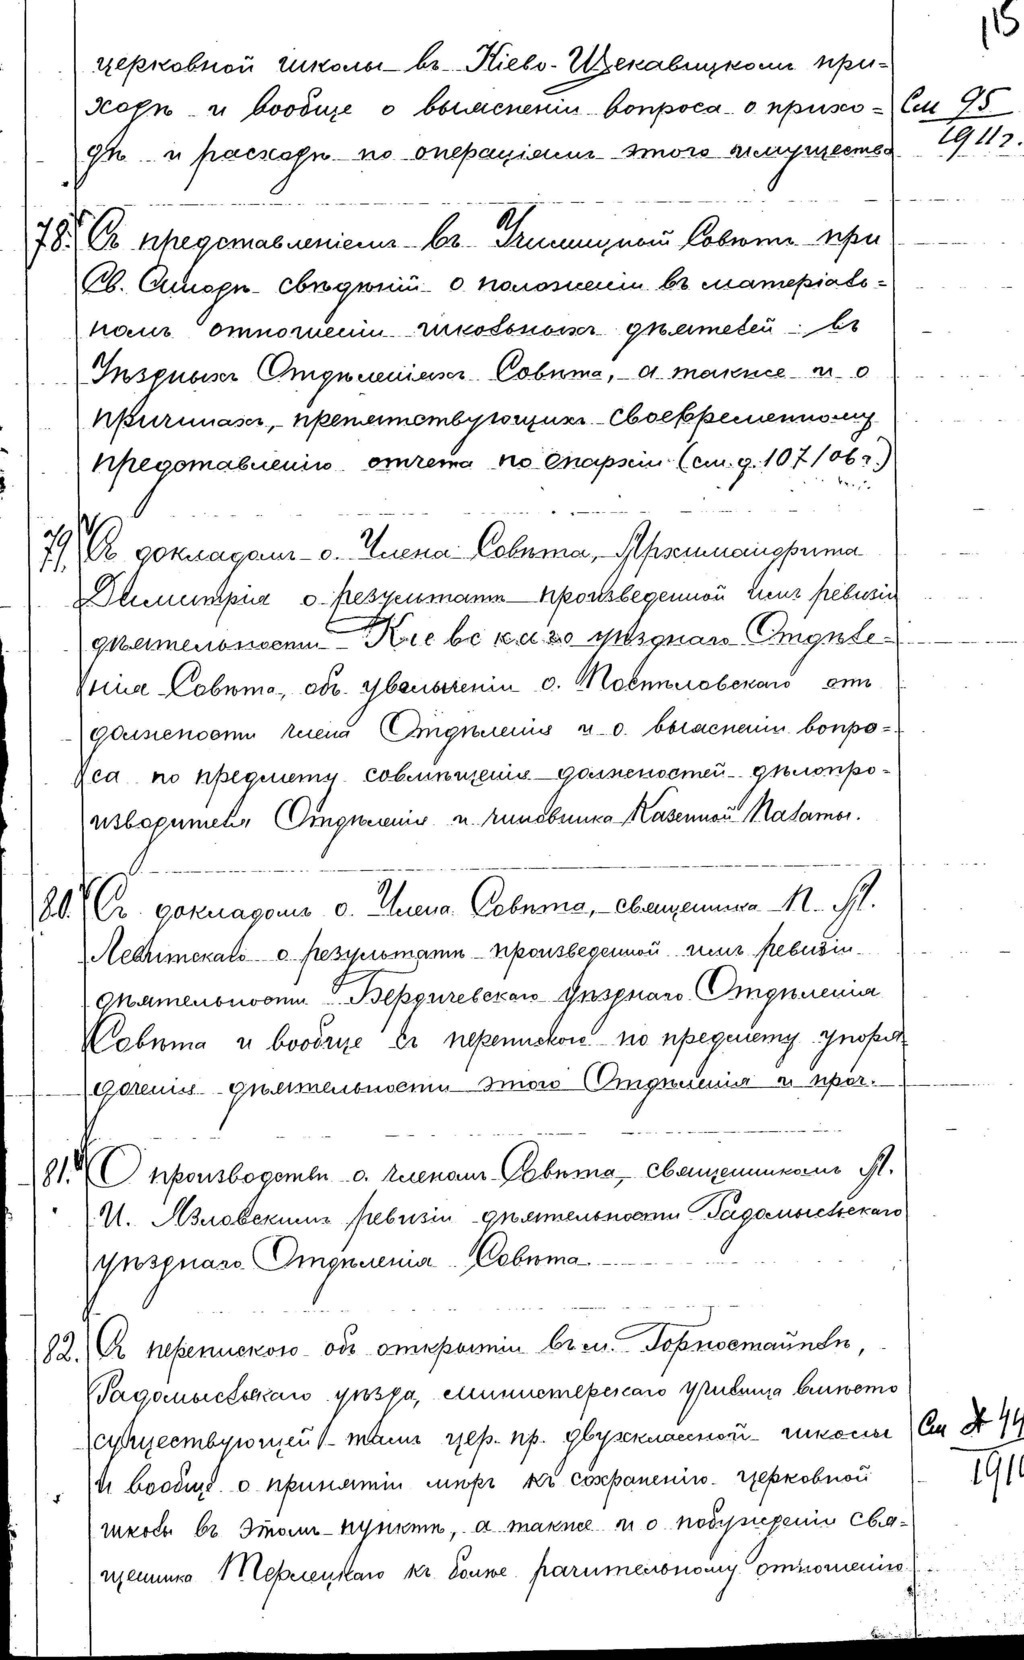 115
церковной школы въ Кіево-Щекавицкомъ при=
ходѣ и вообще о выясненіи вопроса о прихо=
См 95
дѣ и расходѣ по операціямъ этого имущества
1911 г.
78. Съ представленіемъ въ Училищный Совѣтъ при
Св. Синодѣ свѣдѣній о положеніи въ матеріаль=
номъ отношеніи школьныхъ дѣятелей въ
Уѣздныхъ Отдѣленіяхъ Совѣта, а также и о
причинахъ, препятствующихъ своевременному
представленію отчета по епархіи (см. д. 107/06 г.)
79. Съ докладомъ о. Члена Совѣта, Архимандрита
Димитрія о результатѣ произведенной имъ ревизіи
дѣятельности Кіевскаго уѣзднаго Отдѣле=
нія Совѣта, объ увольненіи о. Поспѣловскаго отъ
должности члена Отдѣленія и о выясненіи вопро=
са по предмету совмѣщенія должностей дѣлопро-
изводителя Отдѣленія и чиновника Казенной Палаты.
80. Съ докладомъ о. Члена Совѣта, священника П. А.
Левитскаго о результатѣ произведенной имъ ревизіи
дѣятельности Бердичевскаго уѣзднаго Отдѣленія
Совѣта и вообще съ перепискою по предмету упоря
доченія дѣятельности этого Отдѣленія и проч.
81. О производствѣ о. членомъ Совѣта, священникомъ А.
И. Язловскимъ ревизіи дѣятельности Радомысльскаго
уѣзднаго Отдѣленія Совѣта.
82. Съ перепискою объ открытіи въ м. Горностайполѣ,
Радомысльскаго уѣзда, министерскаго училища вмѣсто
существующей тамъ цер. пр. двухклассной школы
См № 44
и вообще о принятіи мѣръ къ сохраненію церковной
школы въ этомъ пунктѣ, а также и о побужденіи свя=
щенника Терлецкаго къ болѣе рачительному отношенію